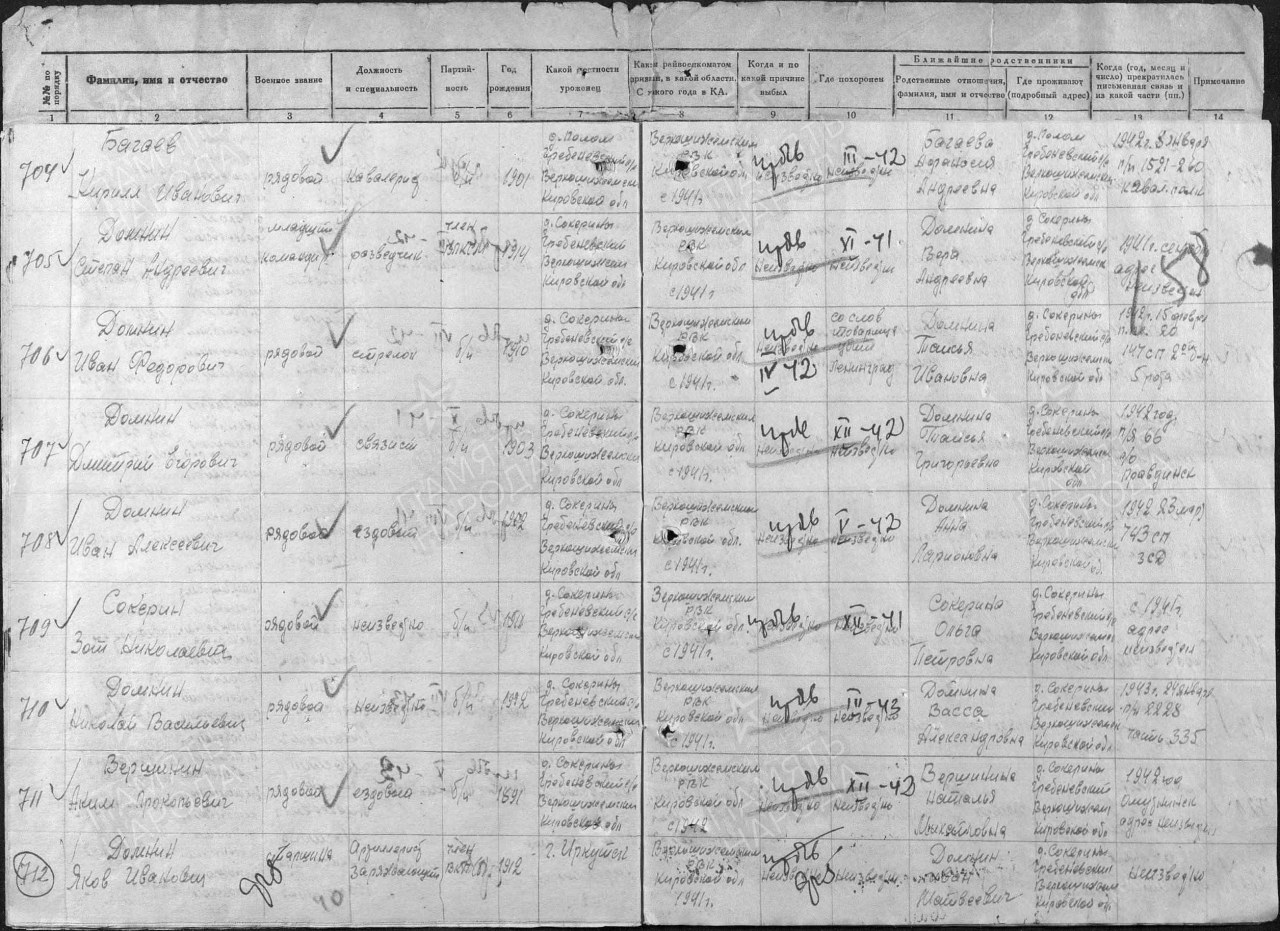 №№ по порядку
Фамилия, имя и отчество
Военное звание
Должность и специальность
Партийность
Год рождения
Какой местности уроженец
Каким райвоенкоматом призван, в какой области. С какого года в КА.
Когда и по какой причине выбыл
Где похоронен
Ближайшие родственники
Родственные отношения, фамилия, имя и отчество
Где проживают (подробный адрес)
Когда (год, месяц и число) прекратилась письменная связь и из какой части (пп.)
Примечание
1 2 3 4 5 6 7 8 9 10 11 12 13 14
704
Багаев
Кирилл Иванович
рядовой
кавалерист
б/п
1901
д. Полом
Гребеневский с/с
Верхошижемский
Кировской обл
Верхошижемским
РВК
Кировской обл
с 1941г
пр. б/в
неизвестно
III-42
неизвестно
Багаева
Афанасия
Андреевна
д. Полом
Гребеневский с/с
Верхошижемск
Кировской обл
1942г. 8 января
п/п 1521-260
кавал. полк
705
Домнин
Степан Андреевич
младший
командир
разведчик
член
1914
д. Сокерины
Гребеневский
Верхошижемский
Кировской обл
Верхошижемским
РВК
Кировской обл
с 1941г
пр. б/в
неизвестно
XI-41
неизвестно
Домнина
Вера
Андреевна
д Сокерины
Гребеневский с/с
Верхошижемск
Кировской
обл
1941г. сент
адрес
неизвестен
158
706
Домнин
Иван Федорович
рядовой
стрелок
б/п
1910
д. Сокерины
Гребеневский с/с
Верхошижемский
Кировской обл.
Верхошижемским
РВК
Кировской обл
с 1941г
пр. б/в
неизвестно
IV-42
со слов
товарища
убит
Ленинград
Домнина
Таисья
Ивановна
д. Сокерины
Гребеневский с/с
Верхошижемск
Кировской обл
1942г. 15
147 сп 2ой б-н
5 рота
707
Домнин
Дмитрий Егорович
рядовой
связист
б/п
1903
д. Сокерины
Гребеневский с/с
Верхошижемский
Кировской обл
Верхошижемским
РВК
Кировской обл
с 1941г
пр. б/в
неизвестно
XII-42
неизвестно
Домнина
Таисья
Григорьевна
д. Сокерины
Гребеневский с/с
Верхошижемск
Кировской
обл
1942 год
п/я 66
Правдинск
708
Домнин
Иван Алексеевич
рядовой
ездовой
б/п
1902
д. Сокерины
Гребеневский с/с
Верхошижемский
Кировской обл
Верхошижемским
РВК
Кировской обл.
с 1941г.
пр. б/в
неизвестно
V-42
неизвестно
Домнина
Анна
Ларионовна
д. Сокерины
Гребеневский с/с
Верхошижемск
Кировской об.
1942 23 мар
743 сп
3 СД
709
Сокерин
Зот Николаевич
рядовой
неизвестно
б/п
д. Сокерины
Гребеневский с/с
Верхошижемский
Кировской обл
Верхошижемским
РВК
Кировской обл.
с 1941г.
пр. б/в
неизвестно
XII-41
неизвестно
Сокерина
Ольга
Петровна
д. Сокерины
Гребеневский с/с
Верхошижемск
Кировской обл
с 1941г.
адрес
неизвестен
710
Домнин
Николай Васильевич
рядовой
неизвестно
б/п
1922
д. Сокерины
Гребеневский с
Верхошижемский
Кировской обл
Верхошижемским
РВК
Кировской обл
с 1941г.
пр. б/в
неизвестно
III-43
неизвестно
Домнина
Васса
Александровна
д. Сокерины
Гребеневский
Верхошижемск
Кировской обл
1943г. 24 января
п/п 2228
часть 335
711
Вершинин
Аким Прокопьевич
рядовой
ездовой
б/п
1891
д. Сокерины
Гребеневский с/с
Верхошижемский
Кировской обл
Верхошижемским
РВК
Кировской обл
с 1942
пр. б/в
неизвестно
XII-42
неизвестно
Вершинина
Наталья
д. Сокерины
Гребеневский
Верхошижемск
Кировской обл
1942 год
Омутнинск
адрес неизвестен
712
Домнин
Яков Иванович
старшина
Артиллерист
Заряжающий
член
ВКП(б)
1912
г. Иркутск
Верхошижемским
РВК
Кировской обл
1941г.
пр. б/в
неизвестно
неизвестно
Домнин
Матвеевич
д. Сокерины
Гребеневский
Верхошижемск
Кировской обл
неизвестно
ПАМЯТЬ НАРОДА